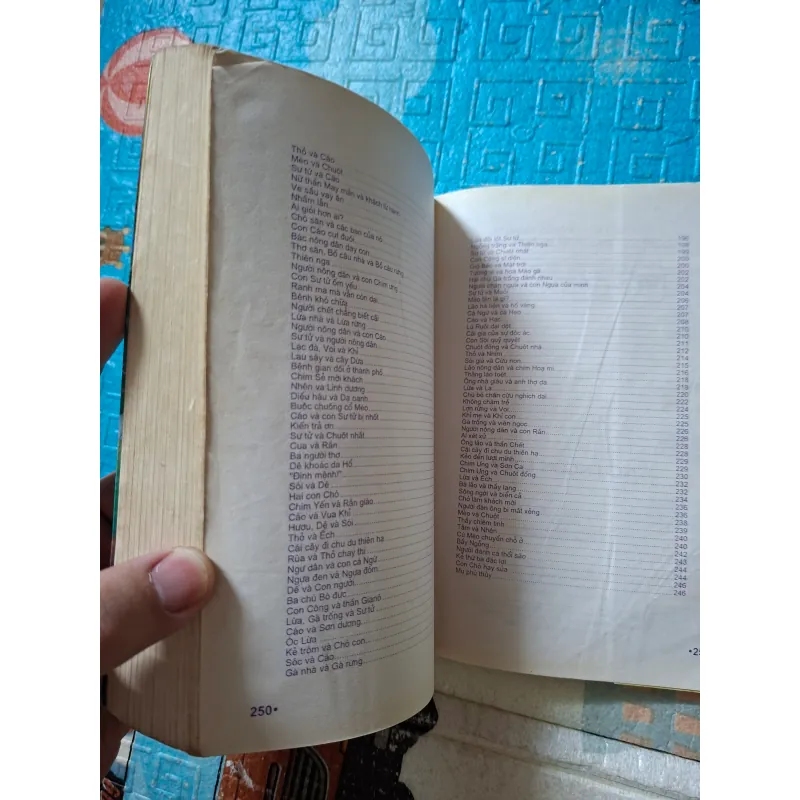 Thỏ và Cáo
Mèo và Chuột
Sư tử và Cáo
Nữ thần May mắn và khách bộ hành
Ve sầu vay ăn
Nhầm lẫn
Ai giỏi hơn ai?
Chó săn và các bạn của nó
Con Cáo cụt đuôi
Bác nông dân dạy con
Thợ săn, Bồ câu nhà và Bồ câu rừng
Thiên nga
Người nông dân và Chim ưng
Con Sư tử ốm yếu
Ranh ma mà vẫn còn dại
Bệnh khó chữa
Người chết chẳng biết cãi
Lừa nhà và Lừa rừng
Người nông dân và con Cáo
Sư tử và người nông dân
Lạc đà, Voi và Khỉ
Lau sậy và cây Dừa
Bệnh gian dối ở thành phố
Chim Sẻ mời khách
Nhện và Linh dương
Diều hâu và Dạ oanh
Buộc chuông cổ Mèo
Cáo và con Sư tử bị nhốt
Kiến trả ơn
Sư tử và Chuột nhắt
Cua và Rắn
Ba người thợ
Dê khoác da Hổ
"Định mệnh!"
Sói và Dê
Hai con Chó
Chim Yến và Rắn giáo
Cáo và Vua Khỉ
Hươu, Dê và Sói
Thỏ và Ếch
Cái cây đi chu du thiên hạ
Rùa và Thỏ chạy thi
Ngư dân và con cá Ngừ
Ngựa đen và Ngựa đốm
Dế và Con người
Ba chú Bò đực
Con Công và thần Gianô
Lừa, Gà trống và Sư tử
Cáo và Sơn dương
Ốc Lừa
Kẻ trộm và Chó con
Sóc và Cáo
Gà nhà và Gà rừng
250•
đôi lời Sư tử 196
Ngỗng trắng và Thiên nga 198
Sư tử và Chuột nhắt 199
Con Công sĩ diện 200
Gió Bấc và Mặt trời 200
Tướng sĩ và hoạ Mèo gà 202
Hai chú Gà trống đánh nhau 202
Người chăn ngựa và con Ngựa của mình 204
Sư tử và Muỗi 204
Màu tím là gì? 206
Lão hà tiện và hũ vàng 207
Cá Ngừ và cá Heo 207
Cáo và Hạc 208
Lũ Ruồi dại dột 210
Cái giá của sự độc ác 210
Con Sói quỷ quyệt 211
Chuột đồng và Chuột nhà 212
Thỏ và Nhím 214
Sói già và Cừu non 214
Lão nông dân và chim Hoạ mi 216
Thằng láo toét 216
Ông nhà giàu và anh thợ da 218
Lừa và La 219
Chú bé chăn cừu nghịch dại 220
Không chậm trễ 222
Lợn rừng và Voi 222
Khỉ mẹ và Khỉ con 224
Gà trống và viên ngọc 225
Người nông dân và con Rắn 226
Ai xét xử 226
Ông lão và thần Chết 228
Cái cây đi chu du thiên hạ 228
Kẻo đến lượt mình 229
Chim Ưng và Sơn Ca 230
Chim Ưng và Chuột đồng 230
Lừa và Ếch 232
Bà lão và thầy lang 232
Sông ngòi và biển cả 234
Chó làm khách mời 235
Người đàn ông bị mất xẻng 236
Mèo và Chuột 238
Thầy chiêm tinh 239
Tằm và Nhện 240
Cú Mèo chuyển chỗ ở 240
Bầy Ngỗng 242
Người đánh cá thổi sáo 243
Kẻ thứ ba đắc lợi 244
Con Chó hay sủa 244
Mụ phù thủy 246
246
•25